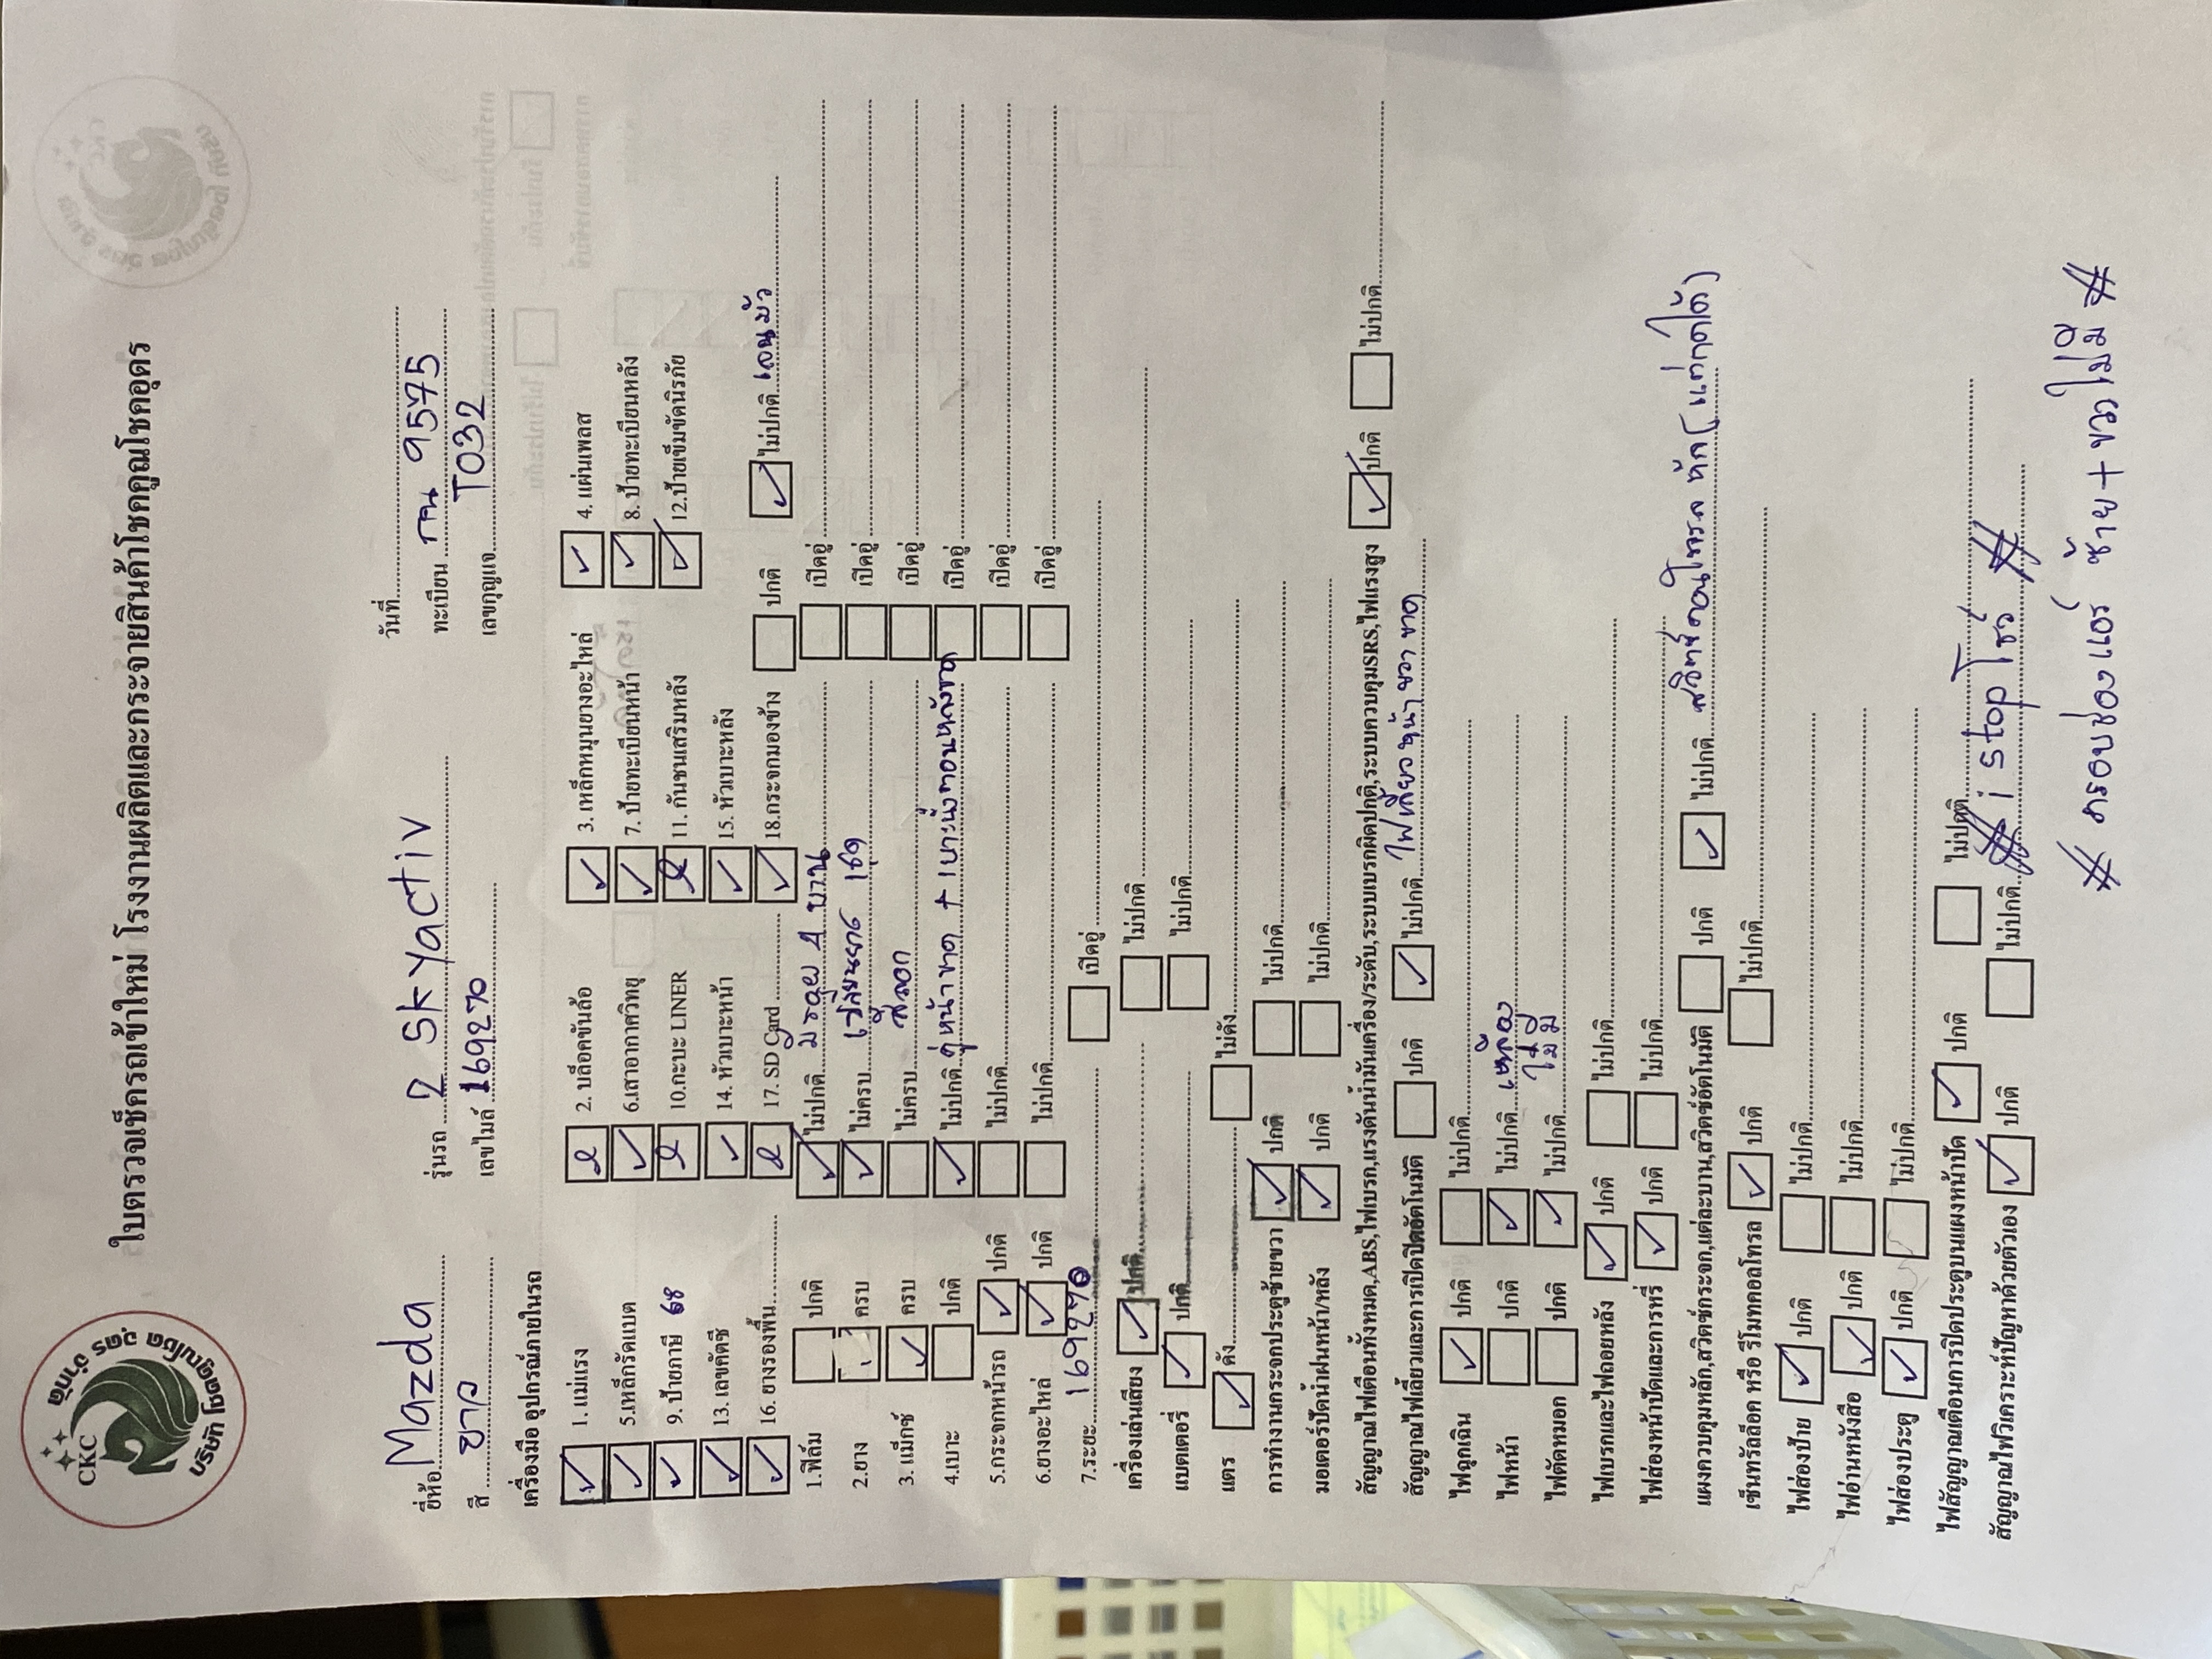 CKC
บริษัท โชคคูณโชค อุดร จำกัด
ใบตรวจเช็ครถเข้าใหม่ โรงงานผลิตและกระจายสินค้าโชคคูณโชคอุดร
วันที่
ยี่ห้อ Mazda รุ่นรถ 2 Skyactiv ทะเบียน กน 9575
สี ขาว เลขไมล์ 169270 เลขกุญแจ T032
เครื่องมือ อุปกรณ์ภายในรถ
1. แม่แรง 2. บล็อคขันล้อ 3. เหล็กหมุนยางอะไหล่ 4. แผ่นเพลส
5.เหล็กรัดแบต 6.เสาอากาศวิทยุ 7. ป้ายทะเบียนหน้า 8. ป้ายทะเบียนหลัง
9. ป้ายภาษี 68 10.กะบะ LINER 11. กันชนเสริมหลัง 12.ป้ายเข็มขัดนิรภัย
13. เลขคัตซี 14. หัวเบาะหน้า 15. หัวเบาะหลัง
16. ยางรองพื้น 17. SD Card 18.กระจกมองข้าง ปกติ ไม่ปกติ เลนมัว
1.ฟิล์ม ปกติ ไม่ปกติ มีรอย 4 บาน เปิดอู่
2.ยาง ครบ ไม่ครบ เปลี่ยนยาง 1ชุด เปิดอู่
3. แม็กซ์ ครบ ไม่ครบ สีลอก เปิดอู่
4.เบาะ ปกติ ไม่ปกติ คู่หน้าขาด + เบาะนั่งตอนหลังขาด เปิดอู่
5.กระจกหน้ารถ ปกติ ไม่ปกติ เปิดอู่
6.ยางอะไหล่ ปกติ ไม่ปกติ เปิดอู่
7.ระยะ 169270 เปิดอู่
เครื่องเล่นเสียง ปกติ ไม่ปกติ
แบตเตอรี่ ปกติ ไม่ปกติ
แตร ดัง ไม่ดัง
การทำงานกระจกประตูซ้ายขวา ปกติ ไม่ปกติ
มอเตอร์ปัดน้ำฝนหน้า/หลัง ปกติ ไม่ปกติ
สัญญาณไฟเตือนทั้งหมด,ABS,ไฟเบรก,แรงดันน้ำมันเครื่อง/ระดับ,ระบบเบรกผิดปกติ,ระบบควบคุมSRS,ไฟแรงสูง ปกติ ไม่ปกติ
สัญญาณไฟเลี้ยวและการเปิดปิดอัตโนมัติ ปกติ ไม่ปกติ ไฟเลี้ยวหน้าขวา ขาด
ไฟฉุกเฉิน ปกติ ไม่ปกติ
ไฟหน้า ปกติ ไม่ปกติ เหลือง
ไฟตัดหมอก ปกติ ไม่ปกติ ไม่มี
ไฟเบรกและไฟถอยหลัง ปกติ ไม่ปกติ
ไฟส่องหน้าปัดและการหรี่ ปกติ ไม่ปกติ
แผงควบคุมหลัก,สวิตช์กระจก,แต่ละบาน,สวิตช์อัตโนมัติ ปกติ ไม่ปกติ สวิตช์คอนโทรล หัก (แต่กดได้)
เซ็นทรัลล็อค หรือ รีโมทคอลโทรล ปกติ ไม่ปกติ
ไฟส่องป้าย ปกติ ไม่ปกติ
ไฟอ่านหนังสือ ปกติ ไม่ปกติ
ไฟส่องประตู ปกติ ไม่ปกติ
ไฟสัญญาณเตือนการปิดประตูบนแผงหน้าปัด ปกติ ไม่ปกติ
สัญญาณไฟวิเคราะห์ปัญหาด้วยตัวเอง ปกติ ไม่ปกติ # i stop โชว์ #
# ครอบช่องแอร์ ซ้าย + ขวา ไม่มี #